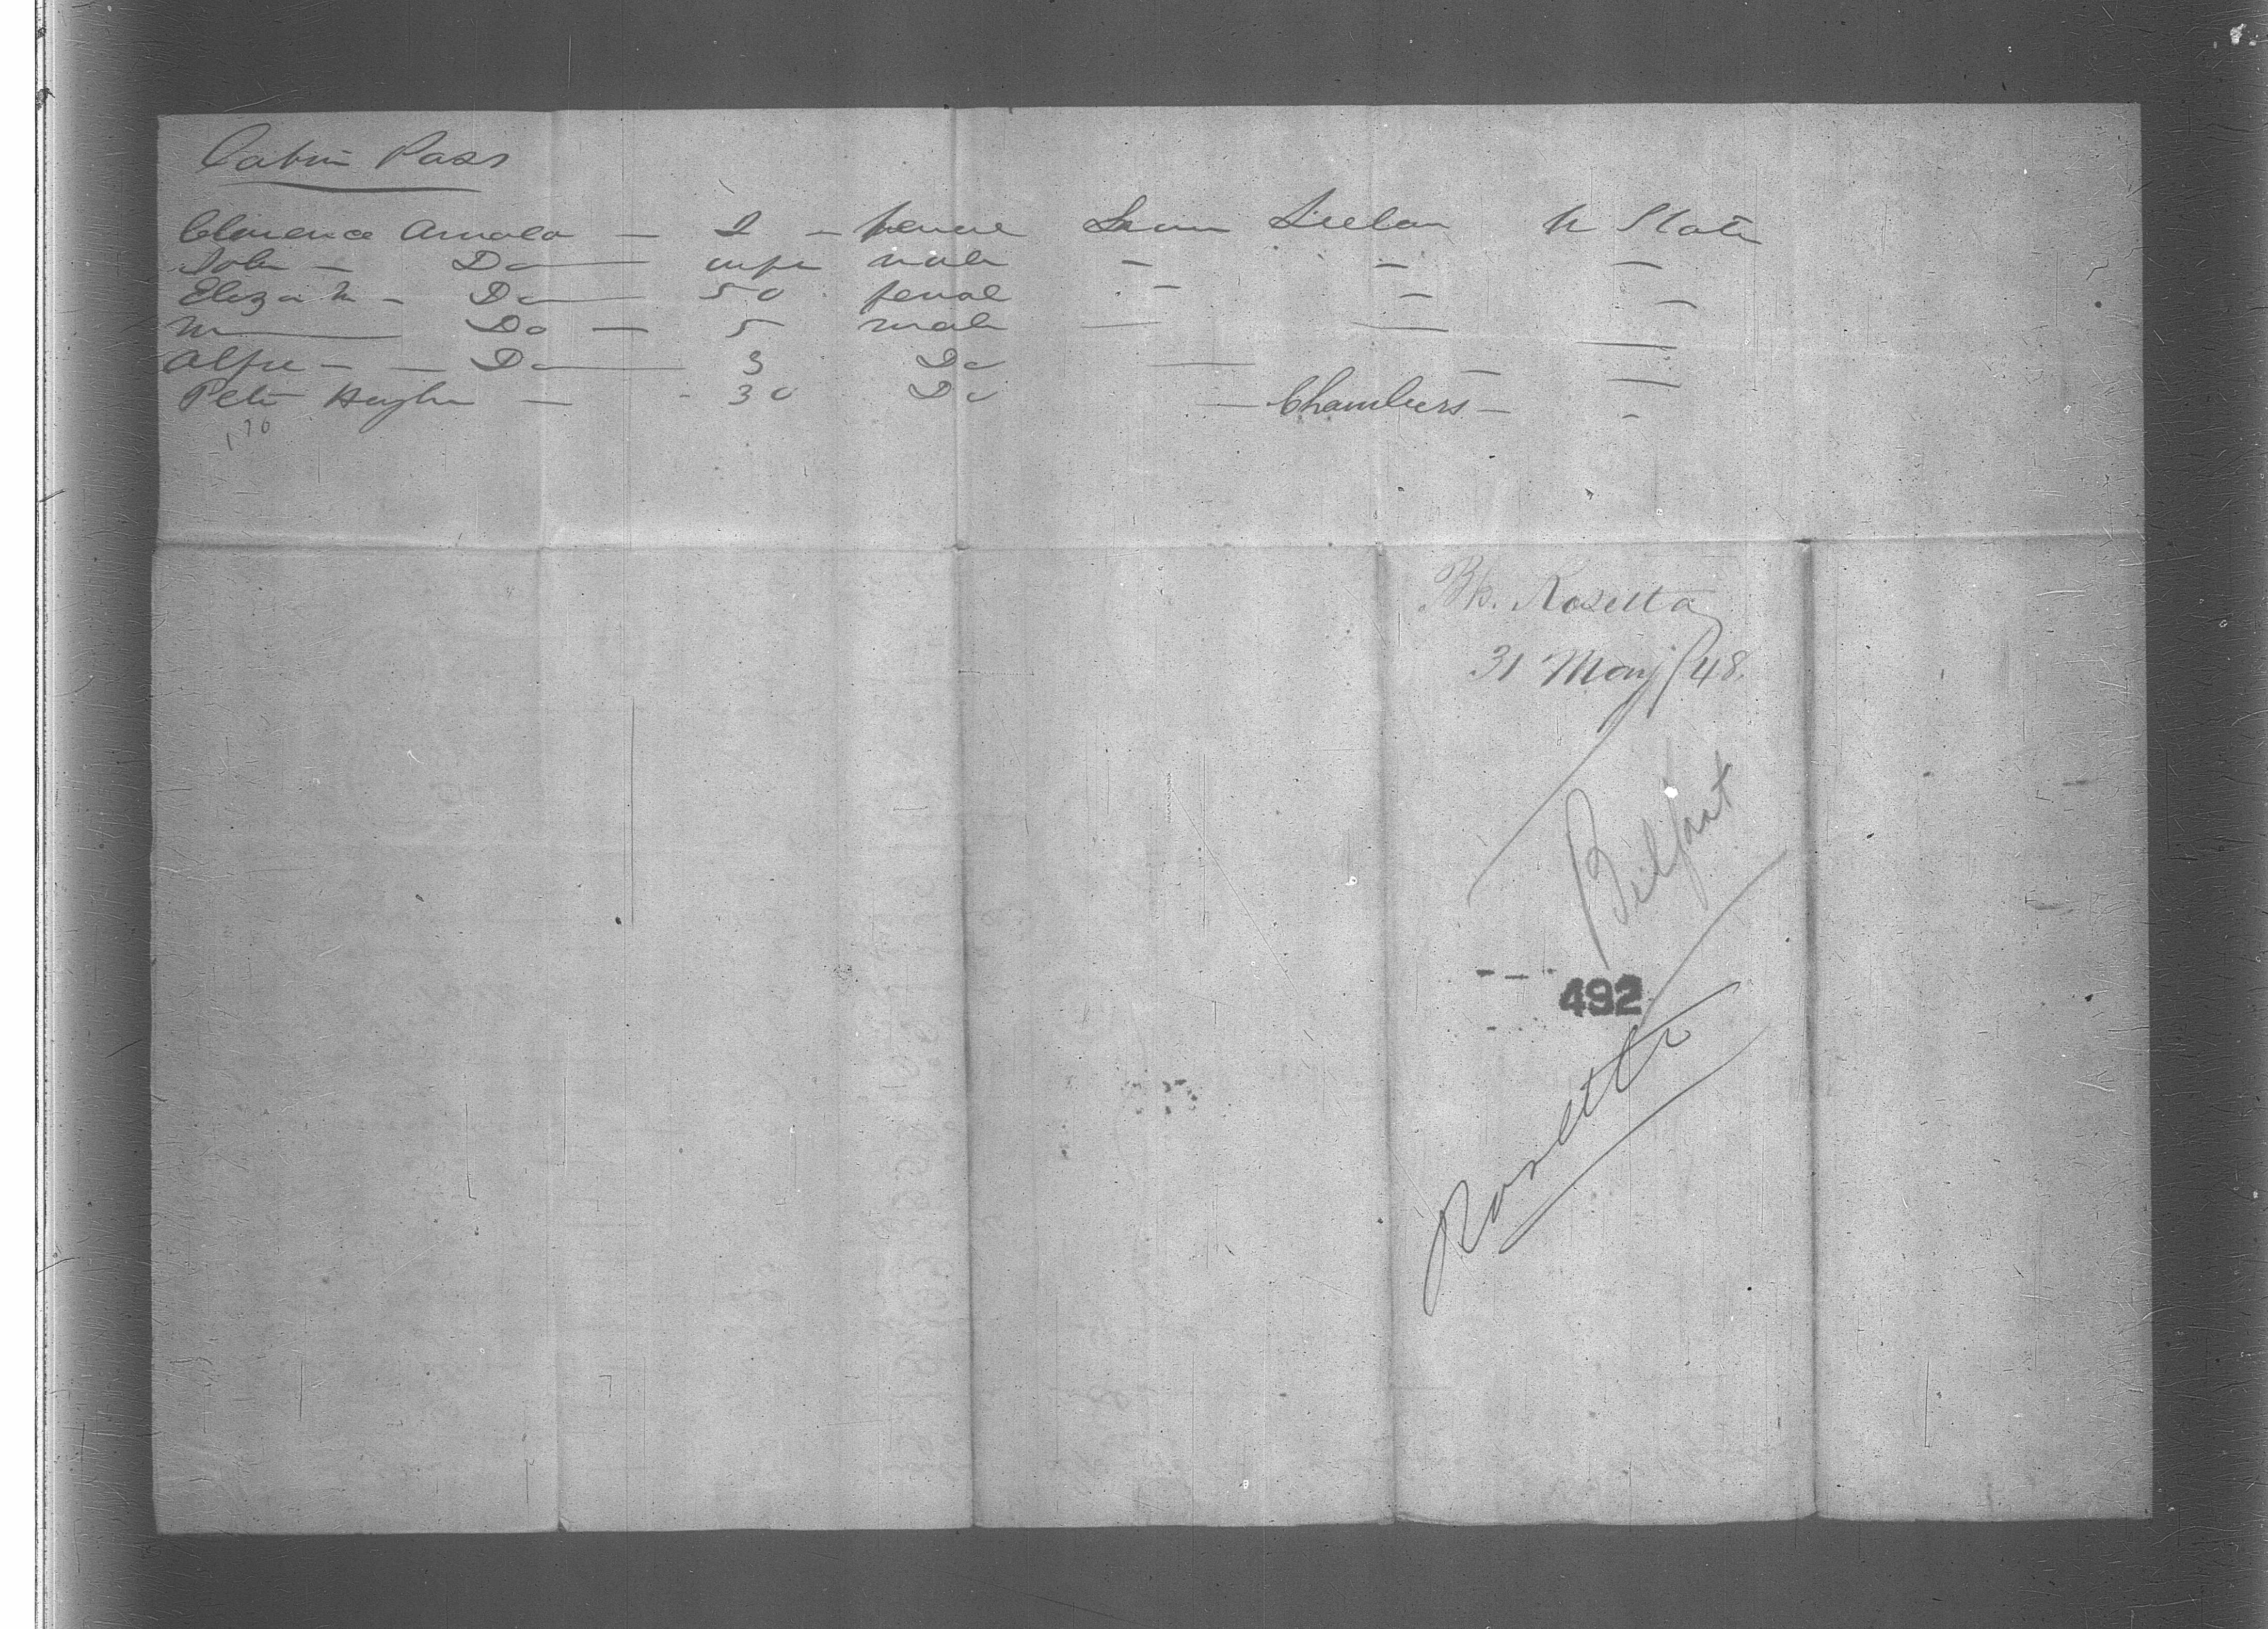 Cabin Pass
Clemence Arnold — 2 — female Irelan U State
John — Do — infa male — — —
Elizath — Do — 50 femal — — —
Wm — Do — 5 male — — —
Alfre — — Do — 3 Do — — —
Peter Hughes — - 30 Do — Chambers — -
170
Bk. Rosetta
31 May /48.
Belfast
492
Rosetta